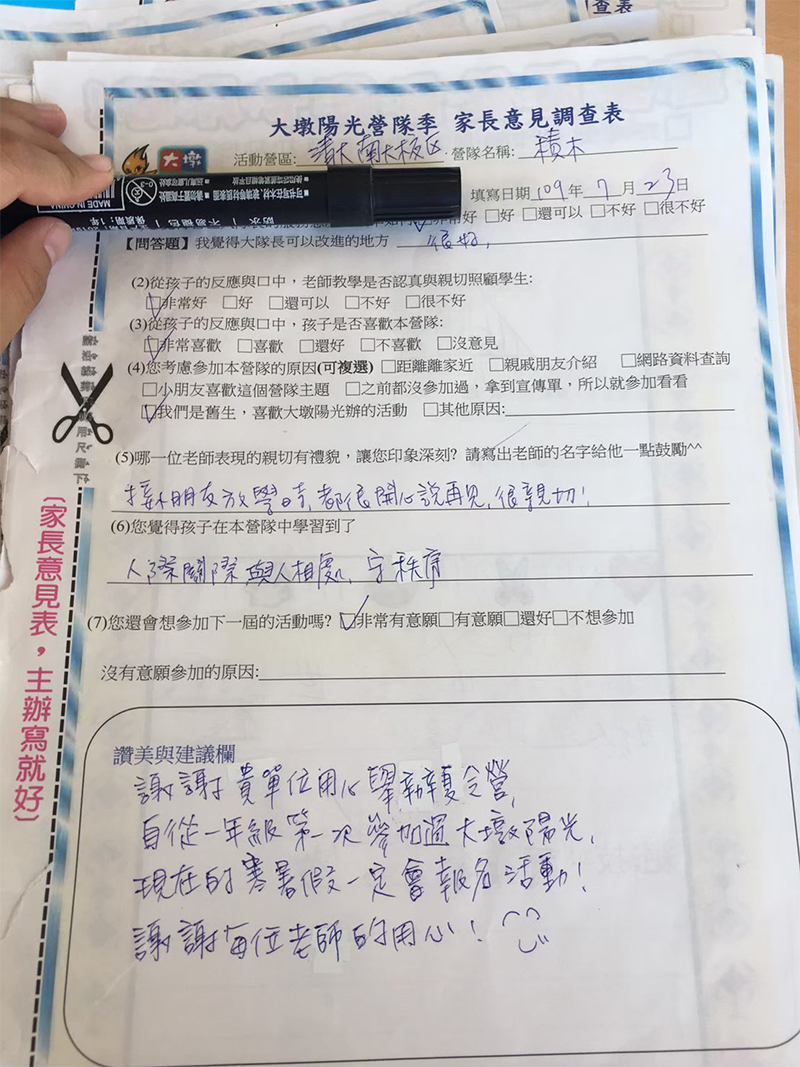 查表
大墩陽光營隊季 家長意見調查表
大墩 活動營區: 清大南大校区 營隊名稱: 積木
填寫日期 109年 7 月 23日
MADE IN CHINA 0-3
非常好 □好 □還可以 □不好 □很不好
【問答題】我覺得大隊長可以改進的地方 很好,
(2)從孩子的反應與口中，老師教學是否認真與親切照顧學生:
☑非常好 □好 □還可以 □不好 □很不好
(3)從孩子的反應與口中，孩子是否喜歡本營隊:
☑非常喜歡 □喜歡 □還好 □不喜歡 □沒意見
(4)您考慮參加本營隊的原因(可複選) □距離離家近 □親戚朋友介紹 □網路資料查詢
□小朋友喜歡這個營隊主題 □之前都沒參加過，拿到宣傳單，所以就參加看看
☑我們是舊生，喜歡大墩陽光辦的活動 □其他原因:
(5)哪一位老師表現的親切有禮貌，讓您印象深刻? 請寫出老師的名字給他一點鼓勵^^
接小朋友放學時,都很開心說再見,很親切!
(6)您覺得孩子在本營隊中學習到了
人際關際與人相處、守秩序
(7)您還會想參加下一屆的活動嗎? ☑非常有意願□有意願□還好□不想參加
沒有意願參加的原因:
〔家長意見表，主辦寫就好〕
讚美與建議欄
謝謝貴單位用心舉辦夏令營,
自從一年級第一次參加過大墩陽光,
現在的寒暑假一定會報名活動!
謝謝每位老師的用心! ^^